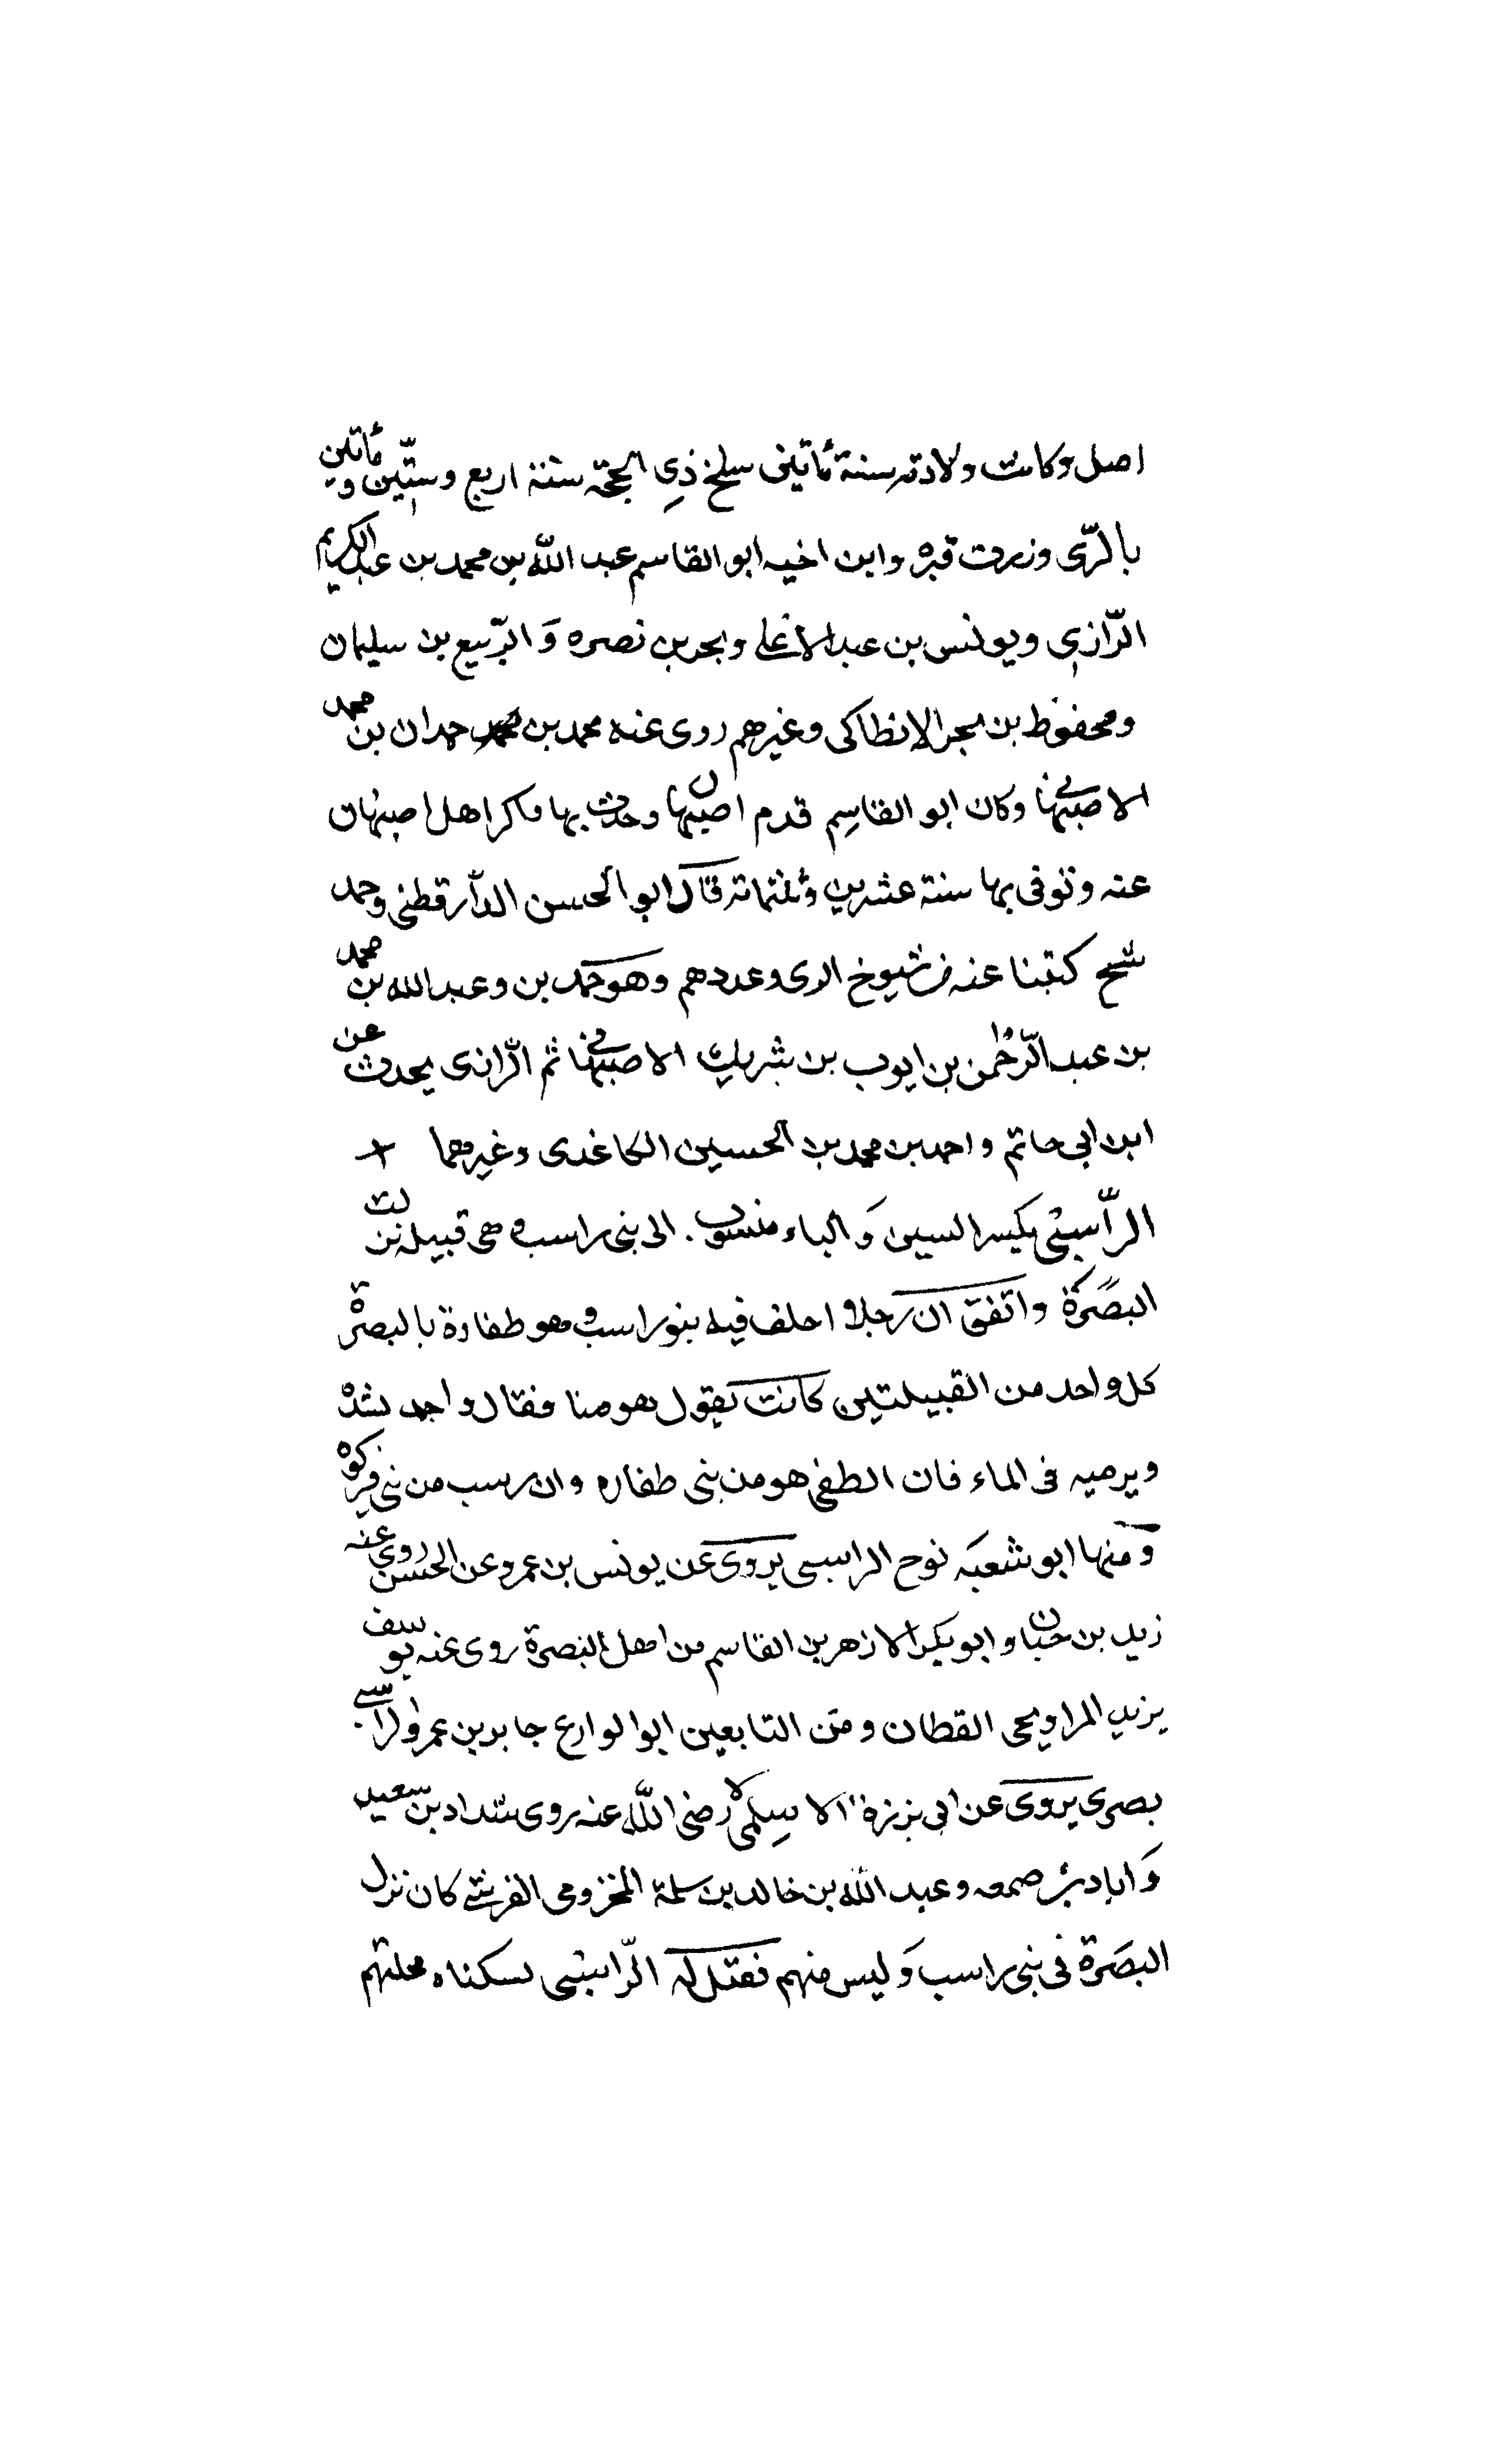 اصل وكانت ولادته سنة مأتين سلخ ذي الحجة سنة اربع وستّين ومأتين
بالرّى وزرت قبره وابن اخيه ابو القاسم عبد اللّه بن محمد بن عبد الكريم
الرّازى ويونس بن عبد الاعلى وبحر بن نصره وَ الربّيع بن سليمان
ومحفوظ بن بحر الانطاكى وغيرهم روى عنه محمد بن حمدان بن محمد
الاصبهانى وكان ابو القاسِم قدم اصبهان وحدث بها فاكر اهل اصبهان
عنه وتوفى بها سنة عشرين وثلثمائة قال ابو الحسن الدّارقطنى وحمد
شيخ كتبنا عنه من شيوخ الرى وعددهم وهو حمد بن وعبد الله بن محمد
بن عبد الرّحمٰن بن ايوب بن شريك الاصبهانى ثم الرّازى يحدث عن
ابن ابى حاتم واحمد بن محمد بن الحسين الكاغدى وغيرهما
الرّاسبى بكسر السين وَ الباء منسوب الى بنى راسب وهى قبيله نزلت
البصَرة واتفق ان رجلا احلف فيه بنو راسب وهو طفاوة بالبصرة
كل واحد من القبيلتين كانت تقول هو منا فقال واحد نشده
ويرميه فى الماء فان الطفى هو من بنى طفاره وان رسب من بنى فتركوه
وَمنها ابو شعبَه نوح الراسبى يروى عن يونس بن عمرو عن الحسن روى عنه
زيد بن حبان وابو بكر الازهر بن القاسم من اهل البصرة روى عنه يوسف
يزيد المراويحى القطان ومن التابعين ابو الوازع جابر بن عمرو الراسبى
بصرى يروى عن ابى برزة الاسلمى رضى اللّٰه عنه روى شداد بن سعيد
وَ ابا د صمعه وعبد اللّه بن خالد بن سلمة المخزومى القرشى كان نزل
البصَرة فى بنى راسب وَ ليس منهم فقتل له الرّاسبى لسكناه محلتهم